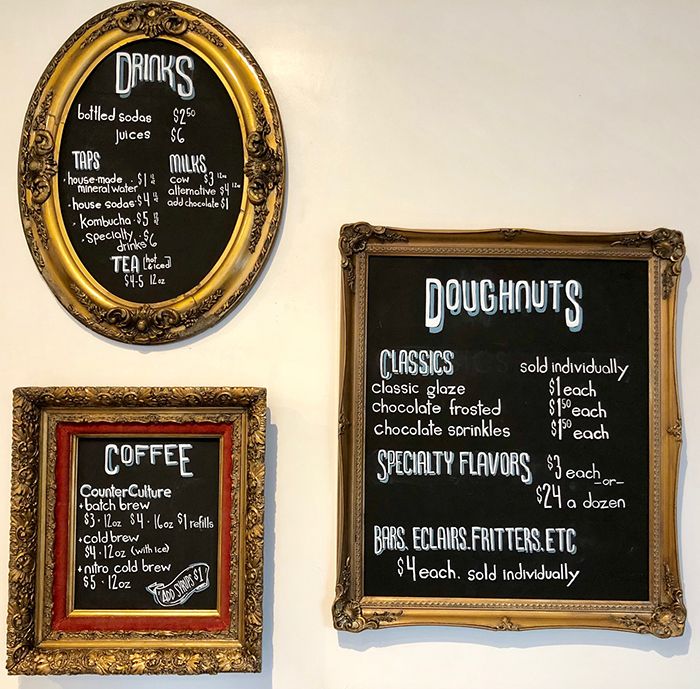 DRINKS
bottled sodas $2.50
juices $6
TAPS
• house-made mineral water • $1
• house sodas • $4
• Kombucha • $5
• specialty drinks • $6
MILKS
cow $3 12oz
alternative $4 12oz
add chocolate $1
TEA (hot & iced)
$4-5 12oz
COFFEE
CounterCulture
• batch brew
$3 • 12oz $4 • 16oz $1 refills
• cold brew
$4 • 12oz (with ice)
• nitro cold brew
$5 • 12oz
ADD SYRUPS $1
DOUGHNUTS
CLASSICS sold individually
classic glaze $1 each
chocolate frosted $1.50 each
chocolate sprinkles $1.50 each
SPECIALTY FLAVORS $3 each
-or-
$24 a dozen
BARS. ECLAIRS. FRITTERS. ETC
$4 each. sold individually